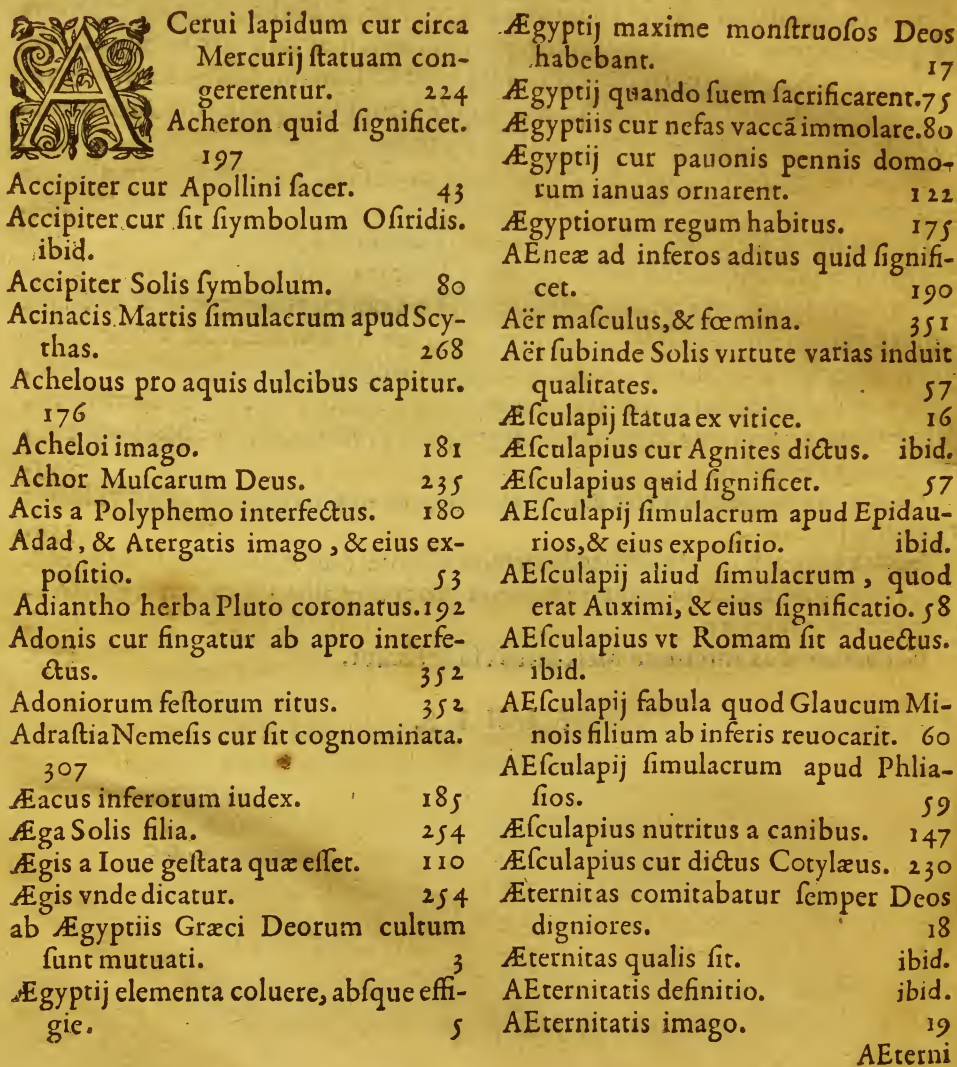 ACerui lapidum cur circa
Mercurij ſtatuam con-
gererentur. 224
Acheron quid ſignificet.
197
Accipiter cur Apollini ſacer. 43
Accipiter cur ſit ſiymbolum Oſiridis.
ibid.
Accipiter Solis ſymbolum. 80
Acinacis Martis ſimulacrum apud Scy-
thas. 268
Achelous pro aquis dulcibus capitur.
176
Acheloi imago. 181
Achor Muſcarum Deus. 235
Acis a Polyphemo interfectus. 180
Adad, & Atergatis imago, & eius ex-
poſitio. 53
Adiantho herba Pluto coronatus. 192
Adonis cur fingatur ab apro interfe-
ctus. 352
Adoniorum feſtorum ritus. 352
Adraſtia Nemeſis cur ſit cognominata.
307
Æacus inferorum iudex. 185
Æga Solis filia. 254
Ægis a Ioue geſtata quæ eſſet. 110
Ægis vnde dicatur. 254
ab Ægyptiis Græci Deorum cultum
ſunt mutuati. 3
Ægyptij elementa coluere, abſque effi-
gie. 5
Ægyptij maxime monſtruoſos Deos
habebant. 17
Ægyptij quando ſuem ſacrificarent. 75
Ægyptiis cur nefas vaccã immolare. 80
Ægyptij cur pauonis pennis domo-
rum ianuas ornarent. 122
Ægyptiorum regum habitus. 175
AEneæ ad inferos aditus quid ſignifi-
cet. 190
Aër maſculus, & fœmina. 351
Aër ſubinde Solis virtute varias induit
qualitates. 57
Æſculapij ſtatua ex vitice. 16
Æſculapius cur Agnites dictus. ibid.
Æſculapius quid ſignificet. 57
AEſculapij ſimulacrum apud Epidau-
rios, & eius expoſitio. ibid.
AEſculapij aliud ſimulacrum, quod
erat Auximi, & eius ſignificatio. 58
AEſculapius vt Romam ſit aduectus.
ibid.
AEſculapij fabula quod Glaucum Mi-
nois filium ab inferis reuocarit. 60
AEſculapij ſimulacrum apud Phlia-
ſios. 59
Æſculapius nutritus a canibus. 147
Æſculapius cur dictus Cotylæus. 230
Æternitas comitabatur ſemper Deos
digniores. 18
Æternitas qualis ſit. ibid.
AEternitatis definitio. ibid.
AEternitatis imago. 19
AEterni